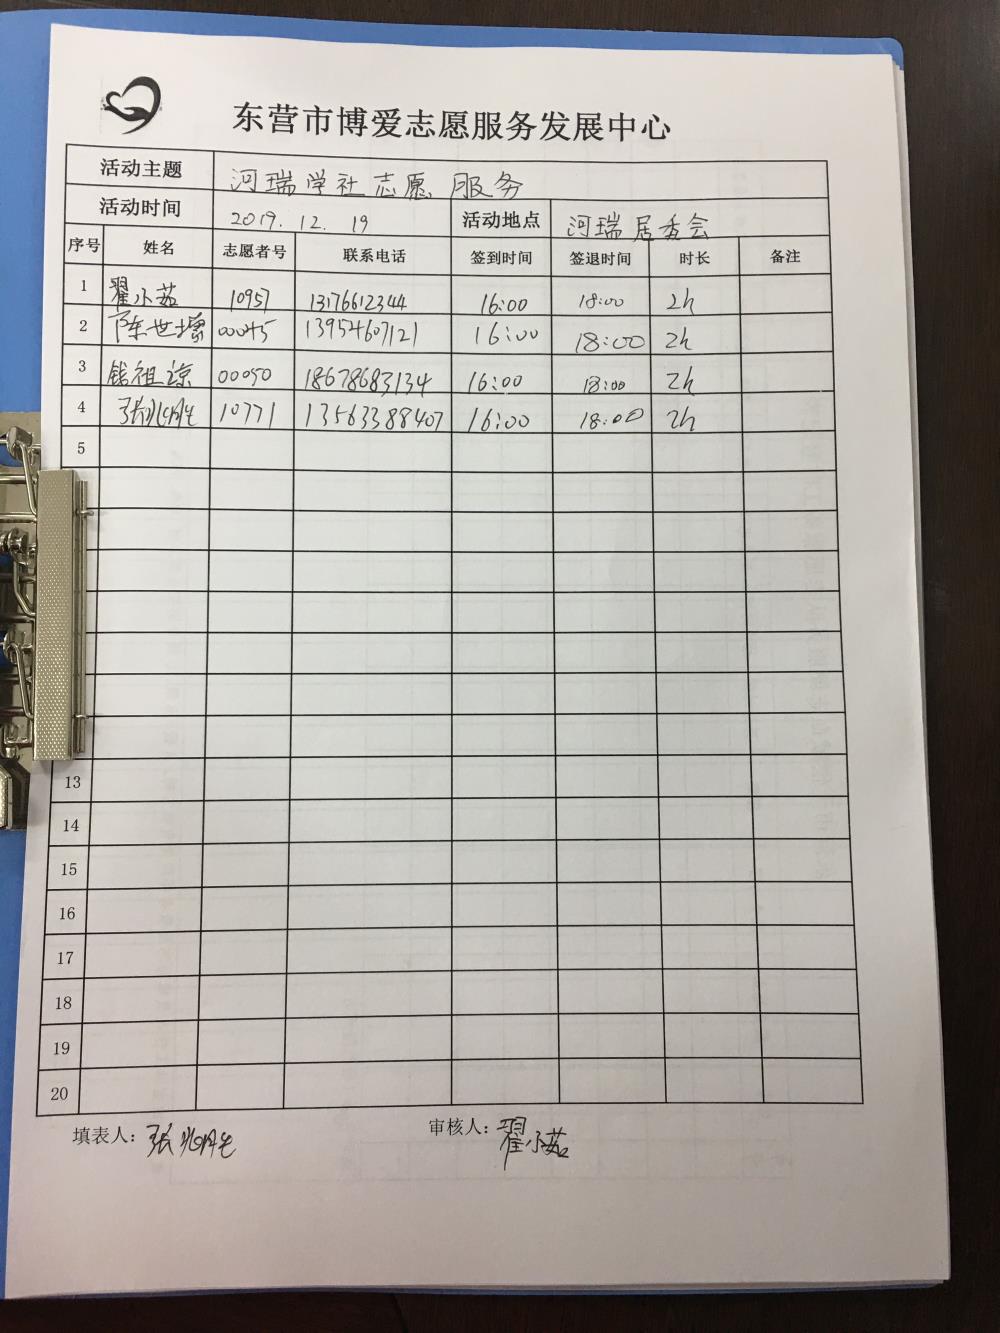 东营市博爱志愿服务发展中心
活动主题 河瑞学社志愿服务
活动时间 2019.12.19 活动地点 河瑞居委会
序号 姓名 志愿者号 联系电话 签到时间 签退时间 时长 备注
1 翟小茹 10957 13176612344 16:00 18:00 2h
2 陈世 00045 13954607121 16:00 18:00 2h
3 钱祖 00050 18678683134 16:00 18:00 2h
4 张兆胜 10771 13563388407 16:00 18:00 2h
5
13
14
15
16
17
18
19
20
填表人：张兆胜 审核人：翟小茹